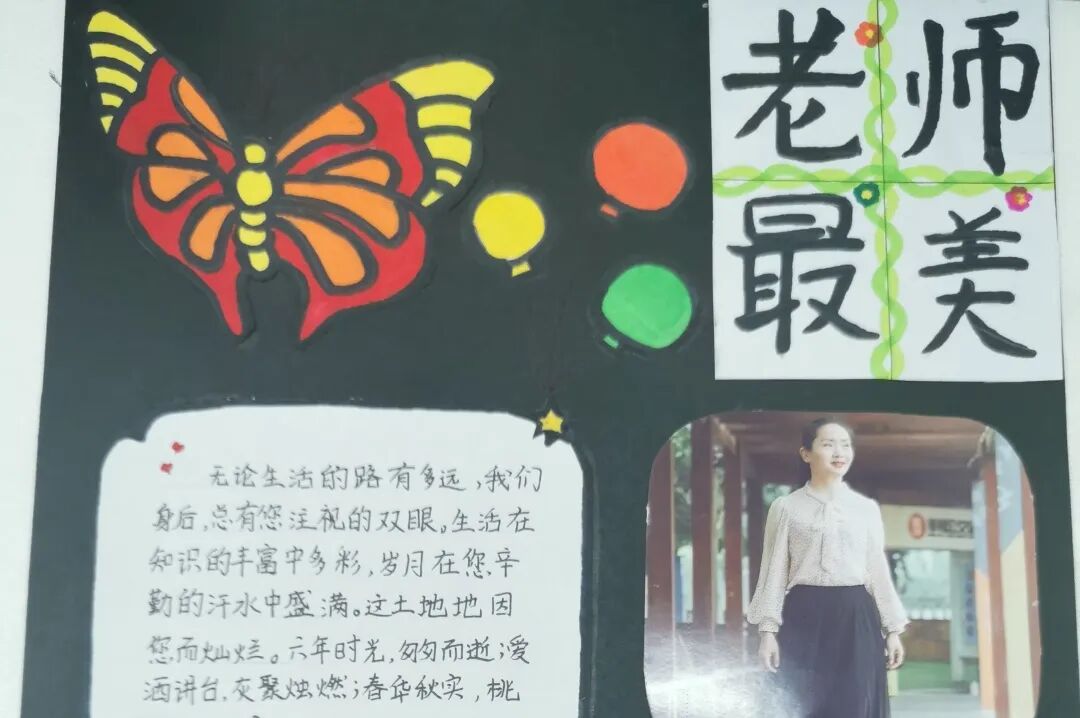 老师
最美
无论生活的路有多远，我们
身后，总有您注视的双眼。生活在
知识的丰富中多彩，岁月在您辛
勤的汗水中盛满。这土地地因
您而灿烂。六年时光，匆匆而逝；爱
洒讲台，灰聚烛燃；春华秋实，桃